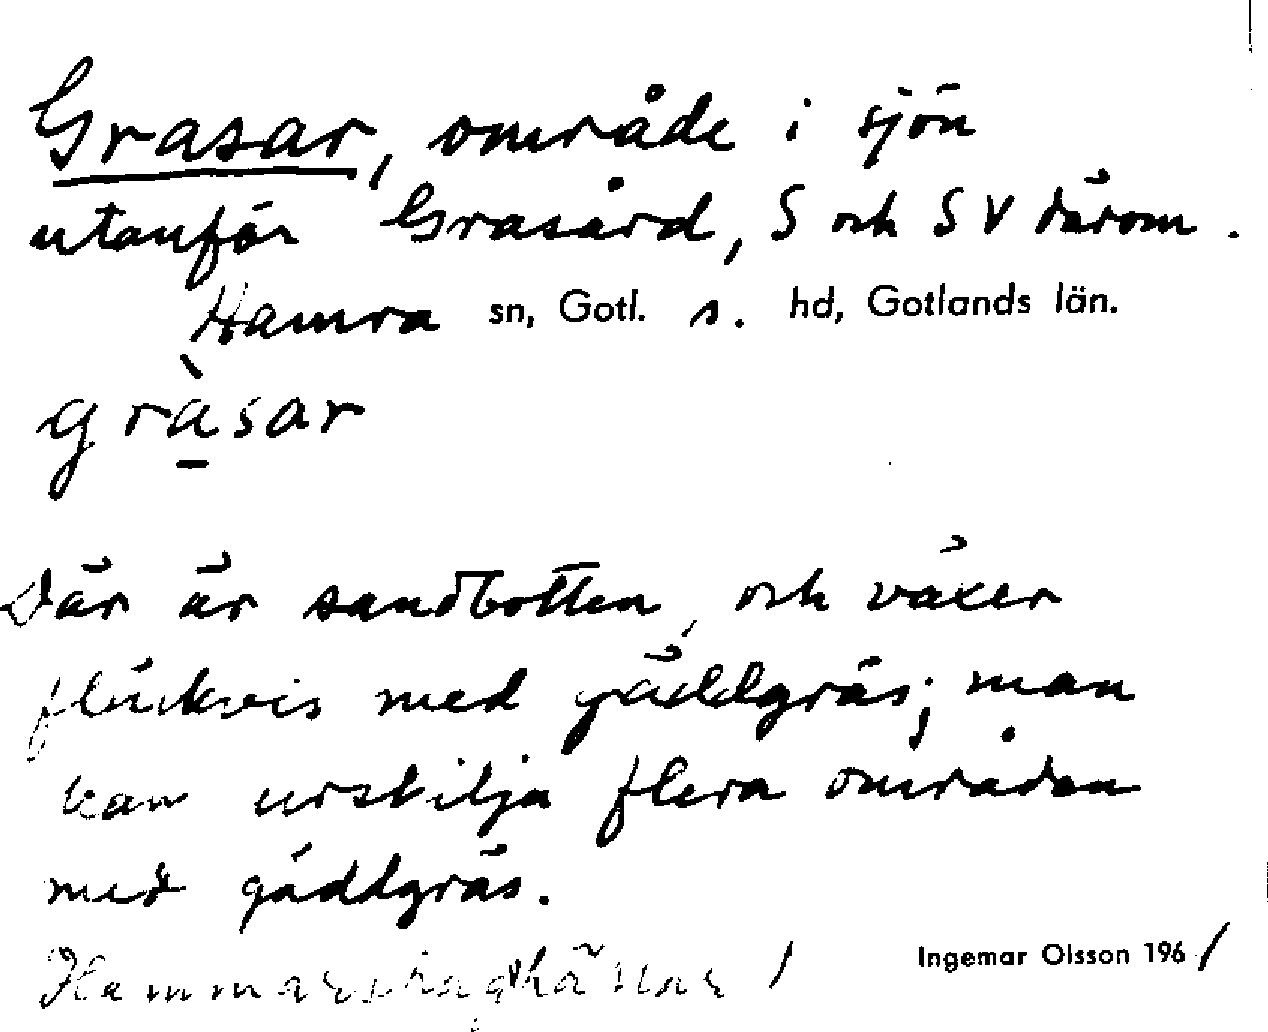 Grasar, område i sjön
utanför Grasård, S och SV därom.
Hamra sn, Gotl. s. hd, Gotlands län.
gràsar
Där är sandbotten, och växer
fläckvis med gäddgräs; man
kan urskilja flera områden
med gäddgräs.
Ingemar Olsson 1961